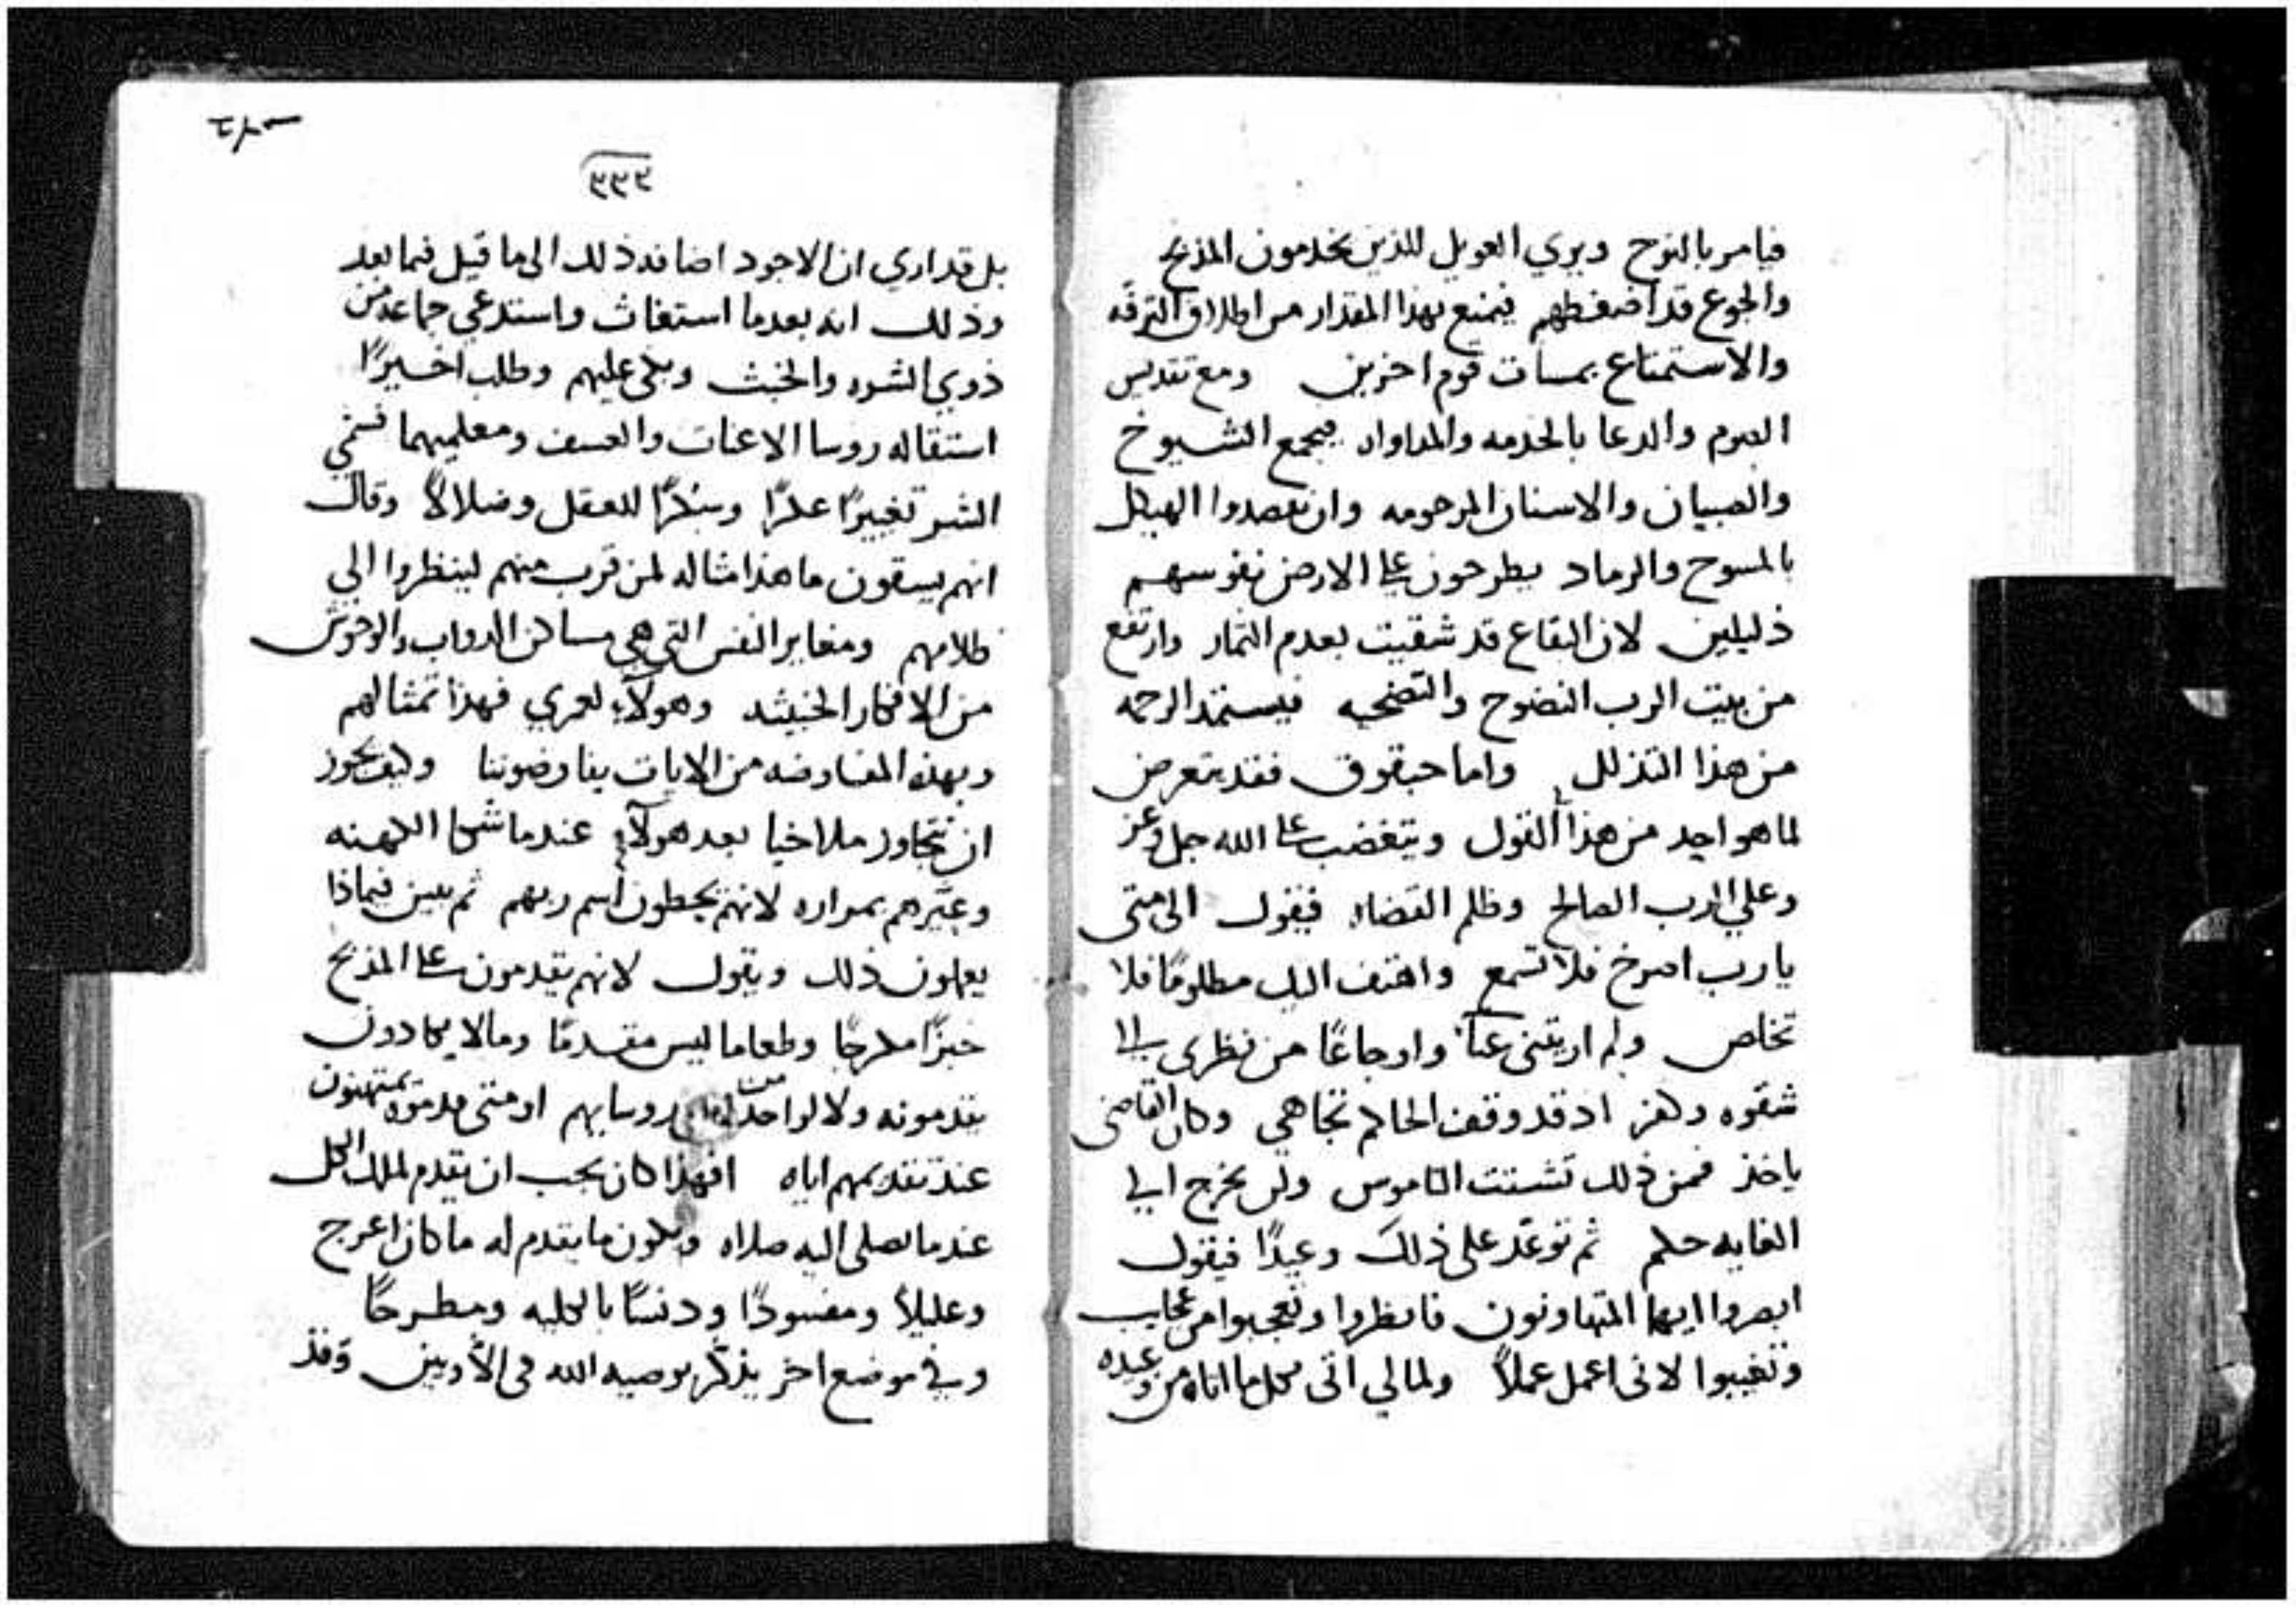 فيامر بالنوح ويري العويل للذين يخدمون المذبح
والجوع قد اضغطهم فيمنع بهذا المقدار من اطلاق الترفه
والاستمتاع بمسات قوم اخرين ومع تقديس
الصوم والدعا بالخدمه والمداواه فيجمع الشيوخ
والصبيان والاسنان المرحومه وان نقصدوا الهيكل
بالمسوح والرماد يطرحون علي الارض نفوسهم
ذليلين لان البقاع قد شقيت بعدم الثمار وارتفع
من بيت الرب النضوح والتضحيه فيستمد الرحمه
من هذا التذلل واما حبقوق فقد يتعرض
لما هو احد من هذا القول ويتغضب علي الله جل وعز
وعلي الرب الصالح وظلم القضاه فيقول الى متى
يارب اصرخ فلا تسمع واهتف اليك مظلومًا فلا
تخلص ولم اريتنى عناً واوجاعًا من نظرى الي
شقوه وكفر اد قد وقف الحاكم تجاهي وكان القاضى
ياخذ فمن ذلك تشتت الناموس ولن يخرج الي
الغايه حكم ثم توعّد على ذلك وعيدًا فيقول
ابصروا ايها المتهاونون فانظروا وتعجبوا من عجايب
وتغيبوا لانى اعمل عملاً ولمالي اتى بكل ما اتاه من وعيده
٣٣٢
بل قد اري ان الاجود اضافه ذلك الى ما قيل فيما بعد
وذلك انه بعدما استغاث واستدعي جماعه من
ذوي الشره والخبث وبكى عليهم وطلب اخيرًا
استقاله روسا الاعنات والعسف ومعلميهما فسمي
الشر تغييرًا عكرًا وسُكرًا للعقل وضلالاً وقال
انهم يسقون ما هذا مثاله لمن قرب منهم لينظروا الي
ظلامهم ومغاير النفس التي هي مساكن الدواب والوحوش
من الافكار الخبيثه وهولاء لعمري فهذا تمثالهم
وبهذه المفاوضه من الايات يفاوضوننا وكيف يجوز
ان نتجاوز ملاخيا بعد هولاء عندما شكا الكهنه
وعيّرهم بمراره لانهم يحطون اسم ربهم ثم يبين فيماذا
يعملون ذلك ويقول لانهم يقدمون علي المذبح
خبزًا ملوجًا وطعاما ليس مقدمًا وما لا يكادون
يقدمونه ولا لواحد من روسايهم او متى قدموه يمتهنون
عند تقديمهم اياه افهذا كان يجب ان يقدم لملك الكل
عندما نصلى اليه صلاه ويكون ما يقدم له ما كان اعرج
وعليلاً ومفسودًا ودنسًا بالكليه ومطرحًا
وفي موضع اخر يذكّر بوصيه الله في اللاويين وقد